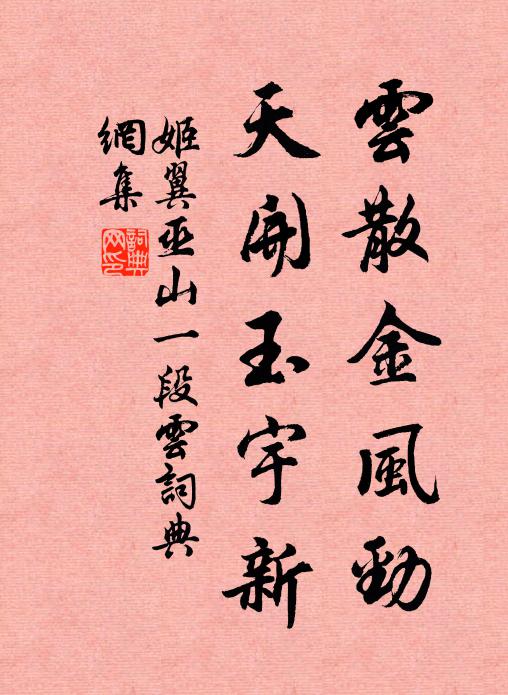 雲散金風勁
天開玉宇新
姬翼巫山一段雲詞典
網集
詞典網印